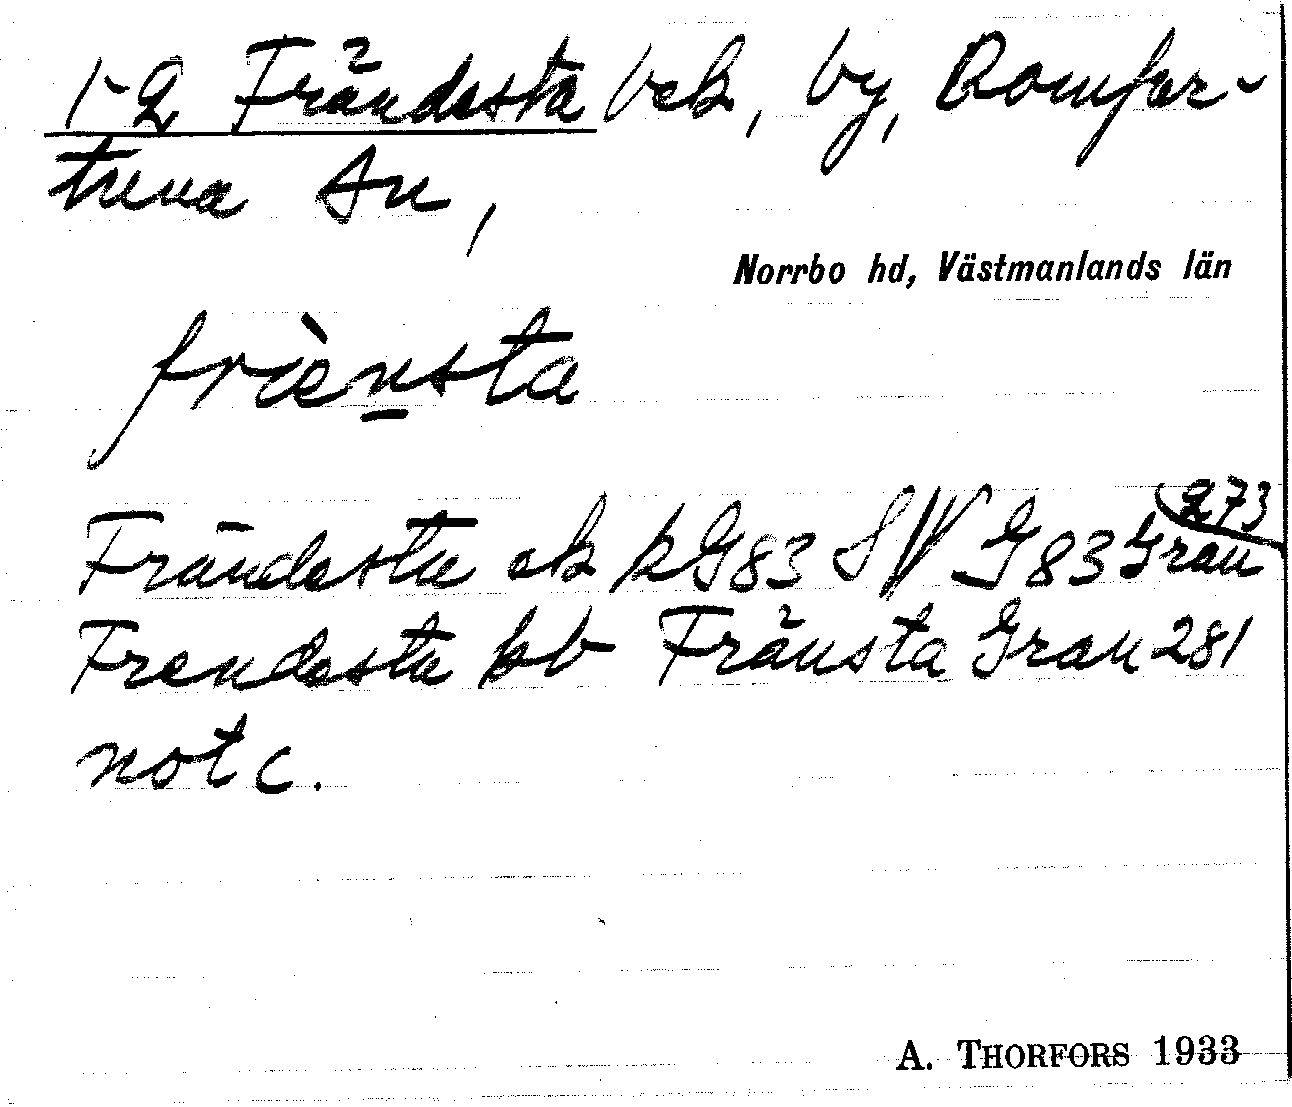 1-2 Frändesta bek, by, Romfar-
tuna sn,
Norrbo hd, Västmanlands län
frìensta
Frändesta ek kG83 SV G83 Grau 273
Frendesta kb Fränsta Grau 281
not c.
A. THORFORS 1933